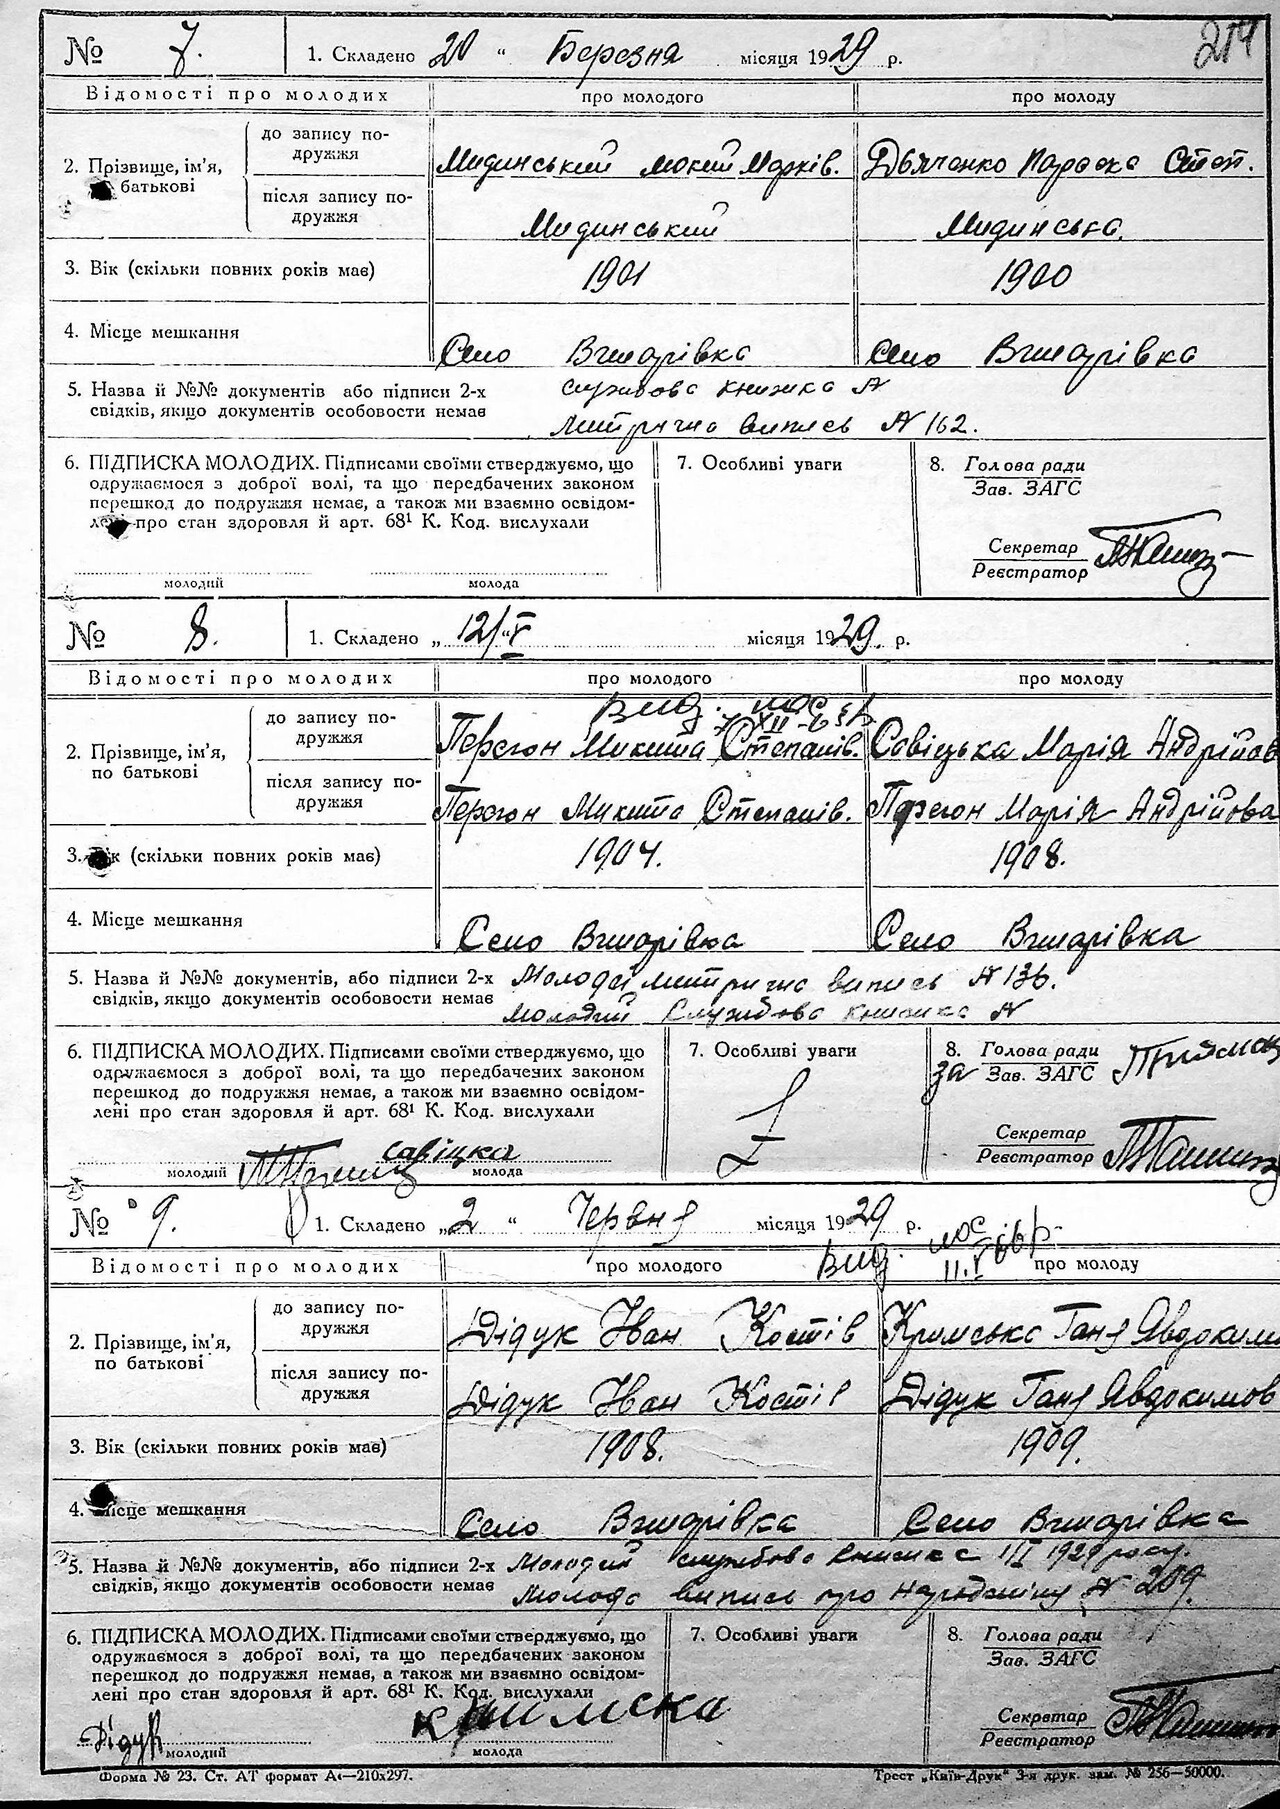 214
№ 7. 1. Складено 20 " Березня місяця 1929 р.
Відомості про молодих про молодого про молоду
2. Прізвище, ім'я, батькові
до запису подружжя Мидинський Мокий Марків. Дьяченко Параска Степ.
після запису подружжя Мидинський Мидинська.
3. Вік (скільки повних років має) 1901 1900
4. Місце мешкання Село Вчиарівка Село Вчиарівка
5. Назва й №№ документів або підписи 2-х Служbова книжка №
свідків, якщо документів особовости немає Митрична випись № 162.
6. ПІДПИСКА МОЛОДИХ. Підписами своїми стверджуємо, що
одружаємося з доброї волі, та що передбачених законом
перешкод до подружжя немає, а також ми взаємно освідом-
лені про стан здоровля й арт. 68¹ К. Код. вислухали
молодий молода
7. Особливі уваги
8. Голова ради
Зав. ЗАГС
Секретар
Реєстратор
№ 8. 1. Складено „ 12/V " місяця 1929. р.
Відомості про молодих про молодого про молоду
Вид.
2. Прізвище, ім'я, по батькові
до запису подружжя Перегон Микита Степанів. Савіцька Марія Андрійов
після запису подружжя Перегон Микита Степанів. Перегон Марія Андрійова
3. Вік (скільки повних років має) 1904. 1908.
4. Місце мешкання Село Вчиарівка Село Вчиарівка
5. Назва й №№ документів, або підписи 2-х Молодої митрична випись № 136.
свідків, якщо документів особовости немає Молодий Службова книжка №
6. ПІДПИСКА МОЛОДИХ. Підписами своїми стверджуємо, що
одружаємося з доброї волі, та що передбачених законом
перешкод до подружжя немає, а також ми взаємно освідом-
лені про стан здоровля й арт. 68¹ К. Код. вислухали
савіцка
молодий молода
7. Особливі уваги
8. Голова ради
за Зав. ЗАГС
Секретар
Реєстратор
№ 9. 1. Складено „2 " Червня місяця 1929 р.
Вид.
Відомості про молодих про молодого про молоду
2. Прізвище, ім'я, по батькові
до запису подружжя Дідук Іван Костів Кримська Ганя Явдоким
після запису подружжя Дідук Іван Костів Дідук Ганя Явдокимов
3. Вік (скільки повних років має) 1908. 1909.
4. Місце мешкання Село Вчиарівка Село Вчиарівка
5. Назва й №№ документів, або підписи 2-х Молодий службова книжка 1929 року.
свідків, якщо документів особовости немає Молода випись про народження № 209.
6. ПІДПИСКА МОЛОДИХ. Підписами своїми стверджуємо, що
одружаємося з доброї волі, та що передбачених законом
перешкод до подружжя немає, а також ми взаємно освідом-
лені про стан здоровля й арт. 68¹ К. Код. вислухали
Дідук кримска
молодий молода
7. Особливі уваги
8. Голова ради
Зав. ЗАГС
Секретар
Реєстратор
Форма № 23. Ст. АТ формат А4—210х297. Трест „Київ-Друк" 3-я друк. зам. № 256—50000.